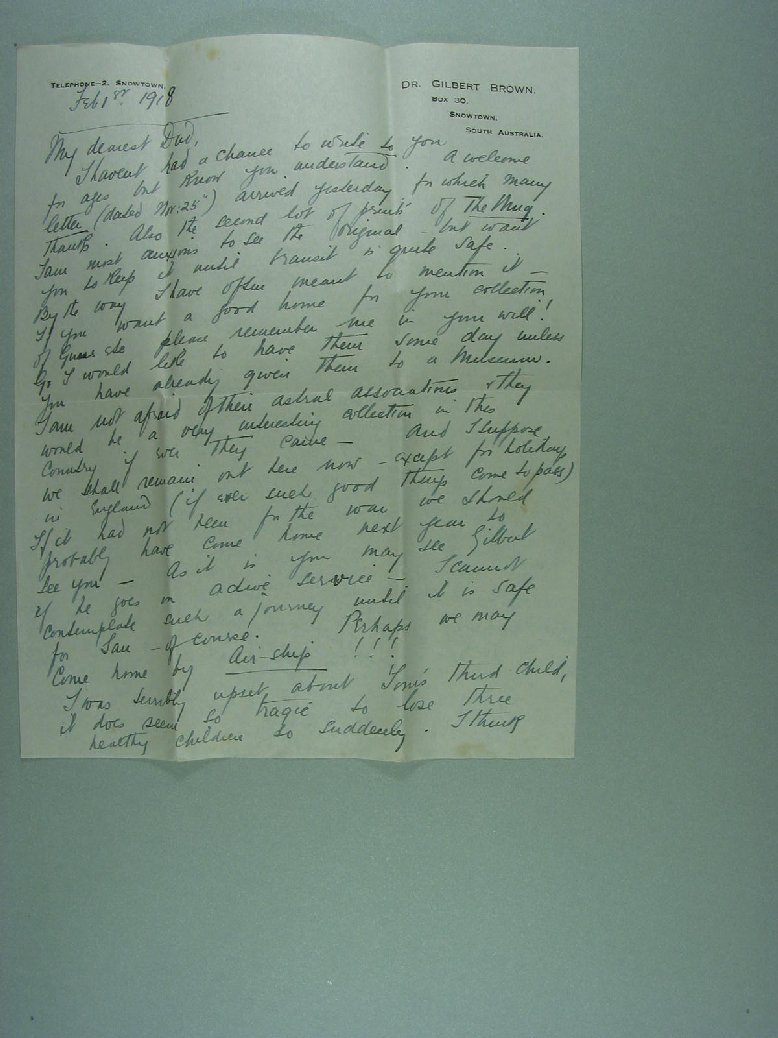 TELEPHONE-2. SNOWTOWN.
DR. GILBERT BROWN.
BOX 30.
SNOWTOWN.
SOUTH AUSTRALIA.
Feb 1st. 1918
My dearest Dad,
I havent had a chance to write to you
for ages but know you understand. A welcome
letter (dated Nov. 25th) arrived yesterday for which many
thanks. Also the second lot of prints of The Mug.
I am most anxious to see the original - but want
you to keep it until transit is quite safe.
By the way I have often meant to mention it —
If you want a good home for your collection
of please remember me in your will!
I would like to have them some day unless
you have already given them to a Museum.
I am not afraid of their astral associations & they
would be a very interesting collection in this
Country if ever they came — and I suppose
we shall remain out here now - except for holidays
in England (if ever such good things come to pass)
If it had not been for the war we should
probably have come home next year to
see you — As it is you may see Gilbert
if he goes on active service — I cannot
contemplate such a journey until it is safe
for Ian - of course. Perhaps we may
Come home by Air-ship !!!
I was terribly upset about Tom's third child,
it does seem so tragic to lose three
healthy children so suddenly. I think